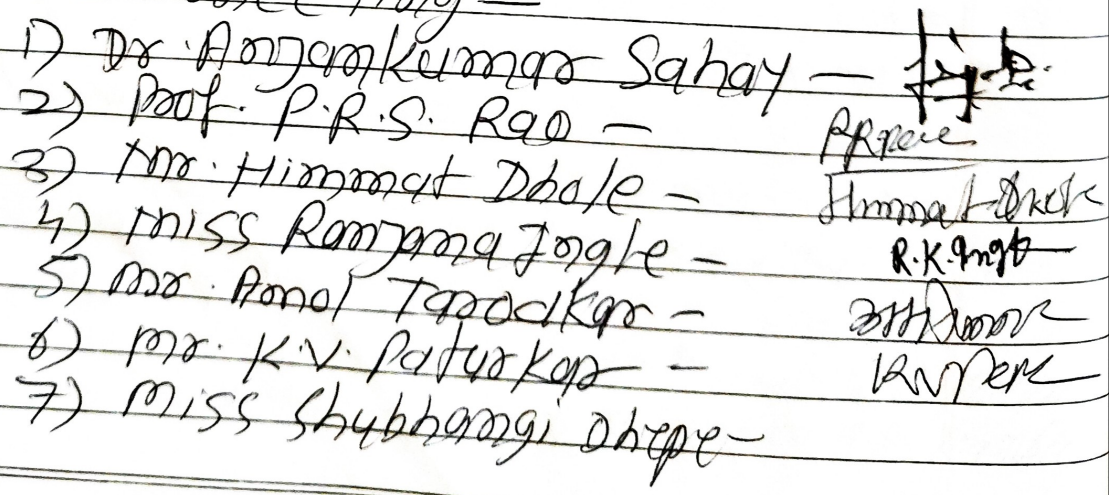 1) Dr. Anjankumar Sahay —
2) Prof. P.R.S. Rao —
3) Mr. Himmat Dhole —
4) Miss Ranjana Ingle — R.K. Ingle
5) Mr. Amol Tarodkar —
6) Mr. K.V. Paturkar —
7) Miss Shubhangi Dhepe —